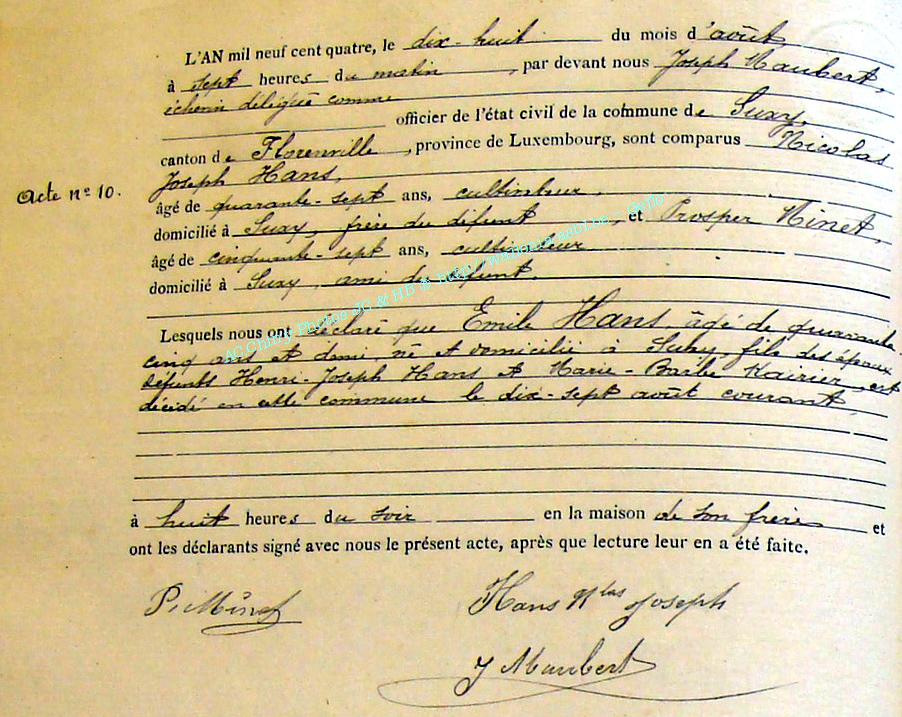 L'AN mil neuf cent quatre, le dix-huit du mois d'août,
à sept heures du matin, par devant nous Joseph Maubert,
échevin délégué comme
officier de l'état civil de la commune de Suxy,
canton de Florenville, province de Luxembourg, sont comparus Nicolas
Joseph Hans,
Acte n° 10.
âgé de quarante-sept ans, cultivateur,
domicilié à Suxy, frère du défunt, et Prosper Minet,
âgé de cinquante-sept ans, cultivateur
domicilié à Suxy, ami du défunt.
Lesquels nous ont déclaré que Emile Hans, âgé de quarante-
cinq ans et demi, né et domicilié à Suxy, fils des époux
défunts Henri-Joseph Hans et Marie-Barbe Kairier, est
décédé en cette commune le dix-sept août courant,
à huit heures du soir en la maison de son frère et
ont les déclarants signé avec nous le présent acte, après que lecture leur en a été faite.
P. Minet
Hans Nlas Joseph
J Maubert